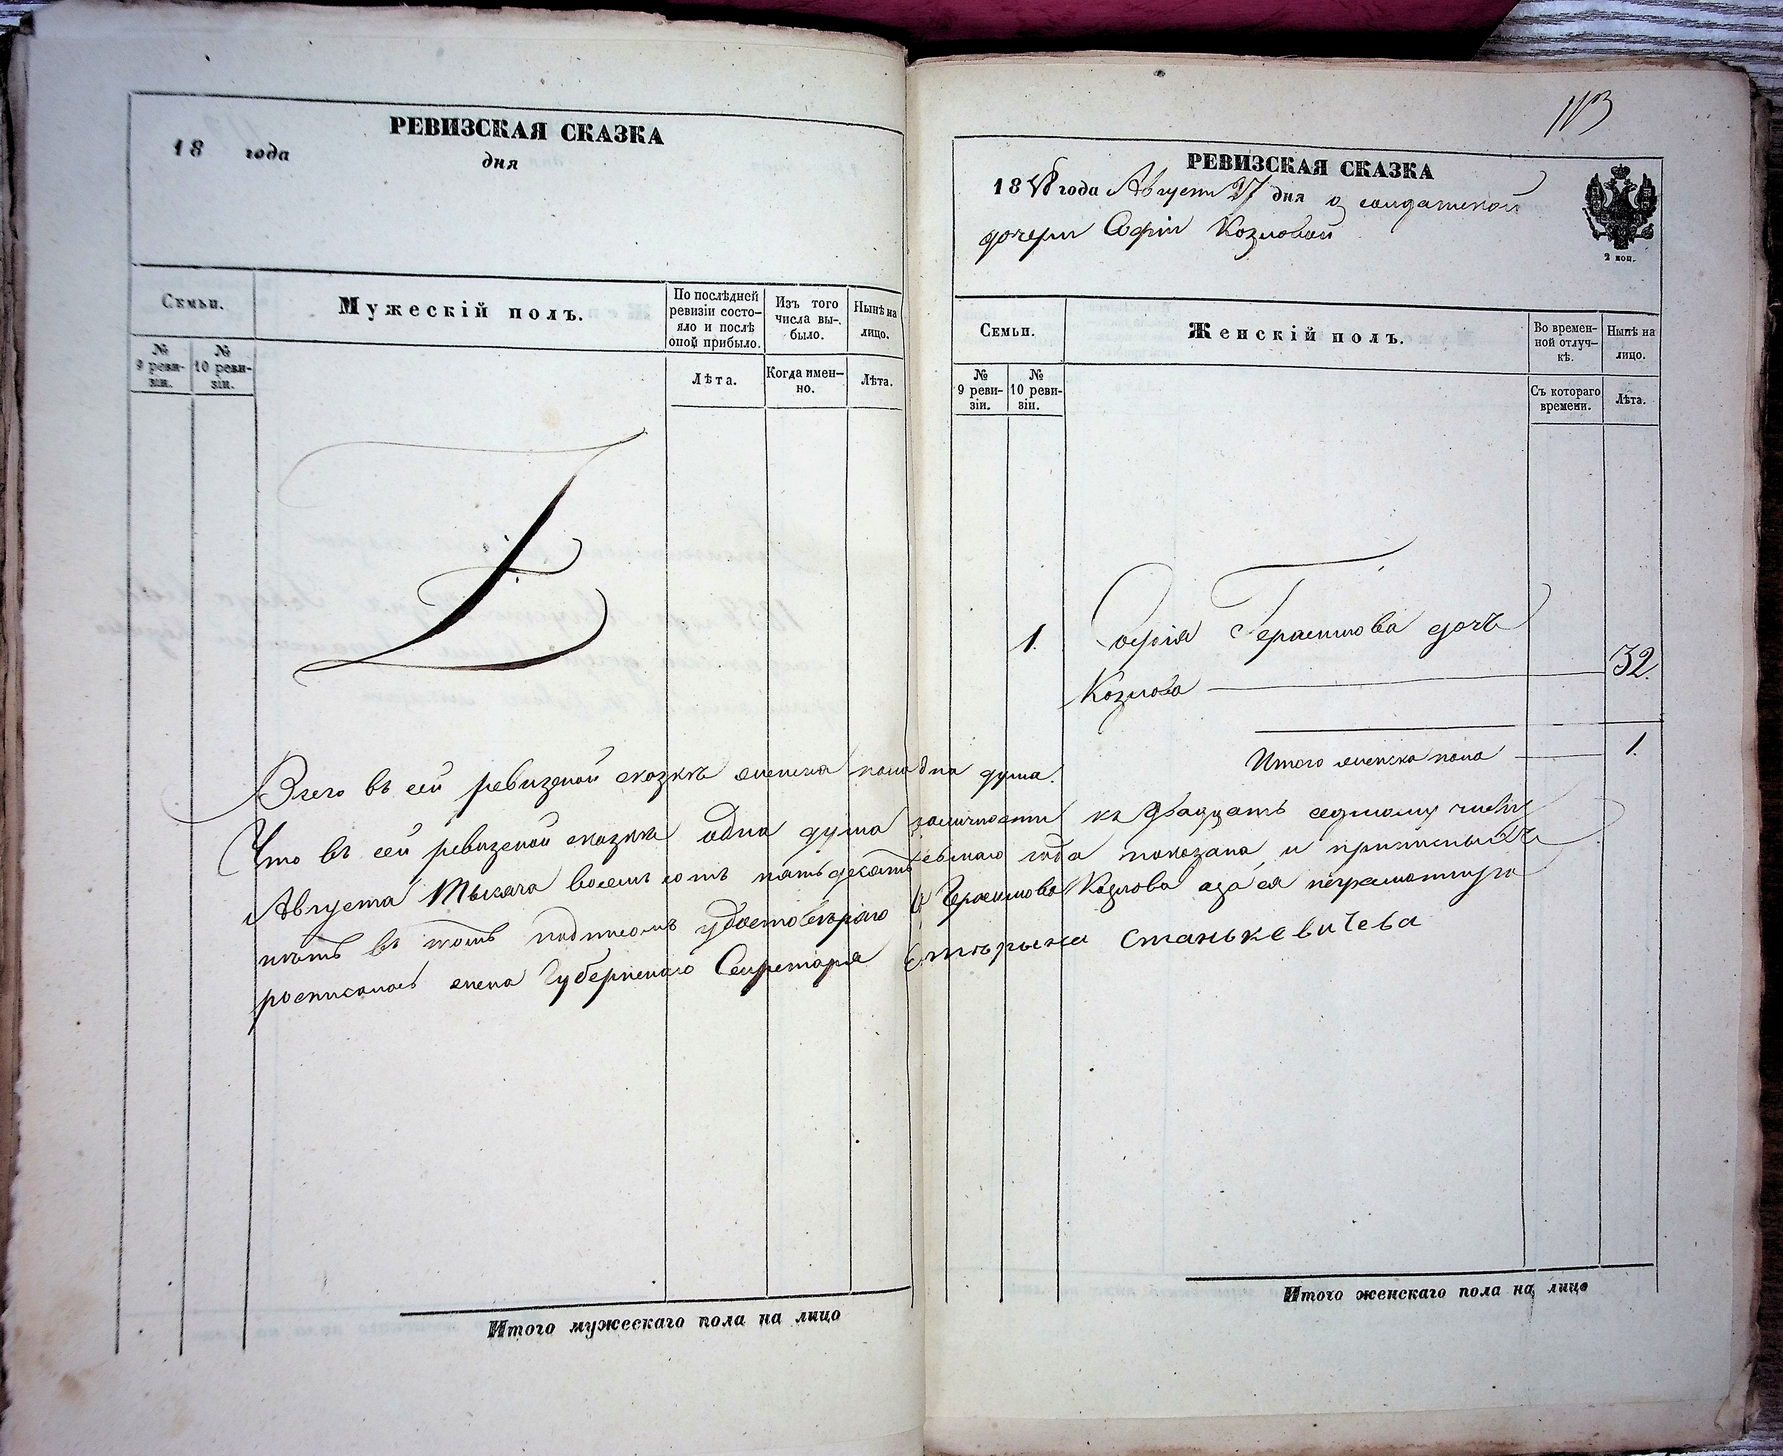 РЕВИЗСКАЯ СКАЗКА
18 года дня
Семьи.
Мужескій полъ.
По послѣдней ревизіи состо-
яло и послѣ оной прибыло.
Изъ того числа вы-
было.
Нынѣ на лицо.
№ 9 реви-
зіи.
№ 10 реви-
зіи.
Лѣта.
Когда имен-
но.
Лѣта.
Итого мужескаго пола на лицо
113
РЕВИЗСКАЯ СКАЗКА
1858 года Августа 27 дня о солдатской
дочери Софіи Козловой
2 коп.
Семьи.
Женскій полъ.
Во времен-
ной отлуч-
кѣ.
Нынѣ на лицо.
№ 9 реви-
зіи.
№ 10 реви-
зіи.
Съ котораго времени.
Лѣта.
1. Софія Герасимова дочь
Козлова 32.
Итого женска пола 1.
Всего въ сей ревизской сказкѣ женска пола одна душа.
Что въ сей ревизской сказкѣ одна душа къ двадцать седмому числу
Августа тысяча восемь сотъ пятьдесятъ года показана и
въ томъ подписомъ Герасимова Козлова а за ея неграмотную
росписалась жена Губернскаго Секретаря Станькевичева
Итого женскаго пола на лицо